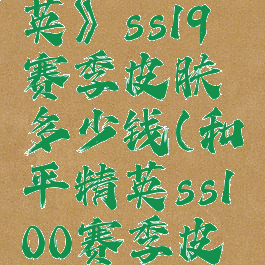 英》ssl9
赛季皮肤
多少钱(和
平精英ssl
00赛季皮